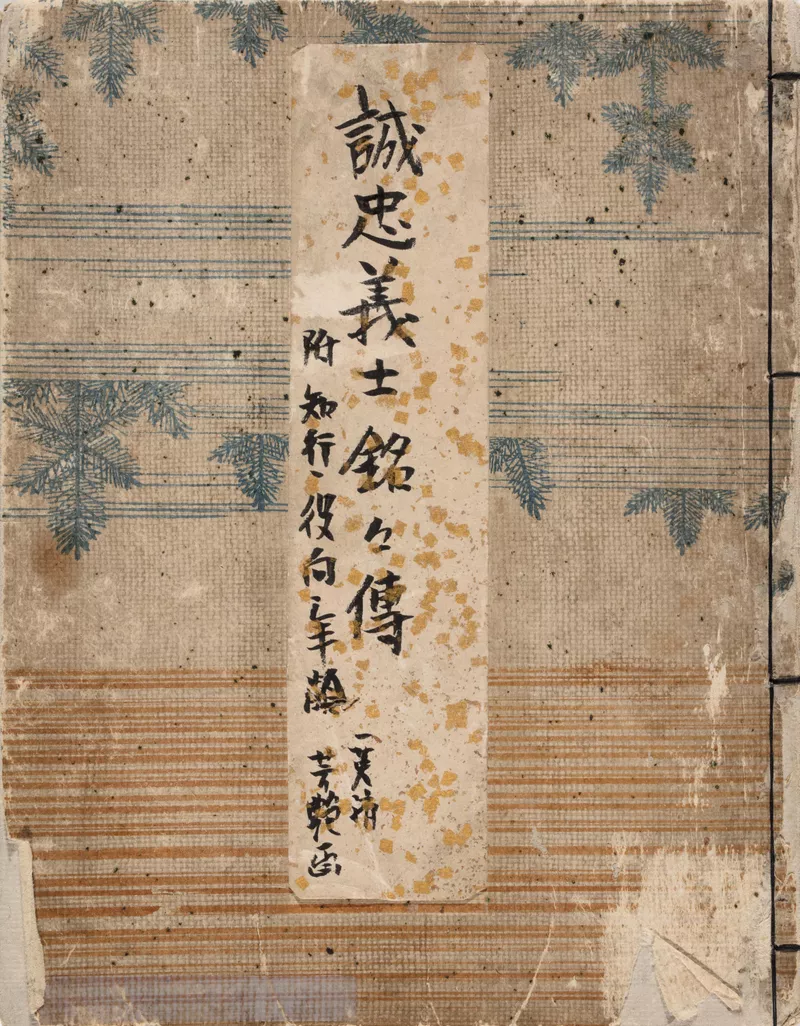 誠忠義士銘々傳
附知行、役向、年齢
一英斎
芳艶画